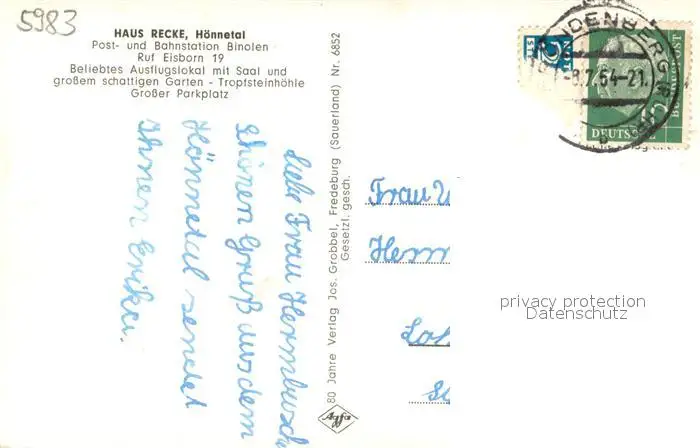 5983
HAUS RECKE, Hönnetal
Post- und Bahnstation Binolen
Ruf Eisborn 19
Beliebtes Ausflugslokal mit Saal und
großem schattigen Garten - Tropfsteinhöhle
Großer Parkplatz
Liebe Frau Hermbusch
Schönen Gruß aus dem
Hönnetal sendet
Ihnen Erika.
80 Jahre Verlag Jos. Grobbel, Fredeburg (Sauerland) Nr. 6852
Gesetzl. gesch.
Agfa
-8.7.54-21
DEUTSCHE
BUNDESPOST
Frau
Herm
privacy protection
Datenschutz